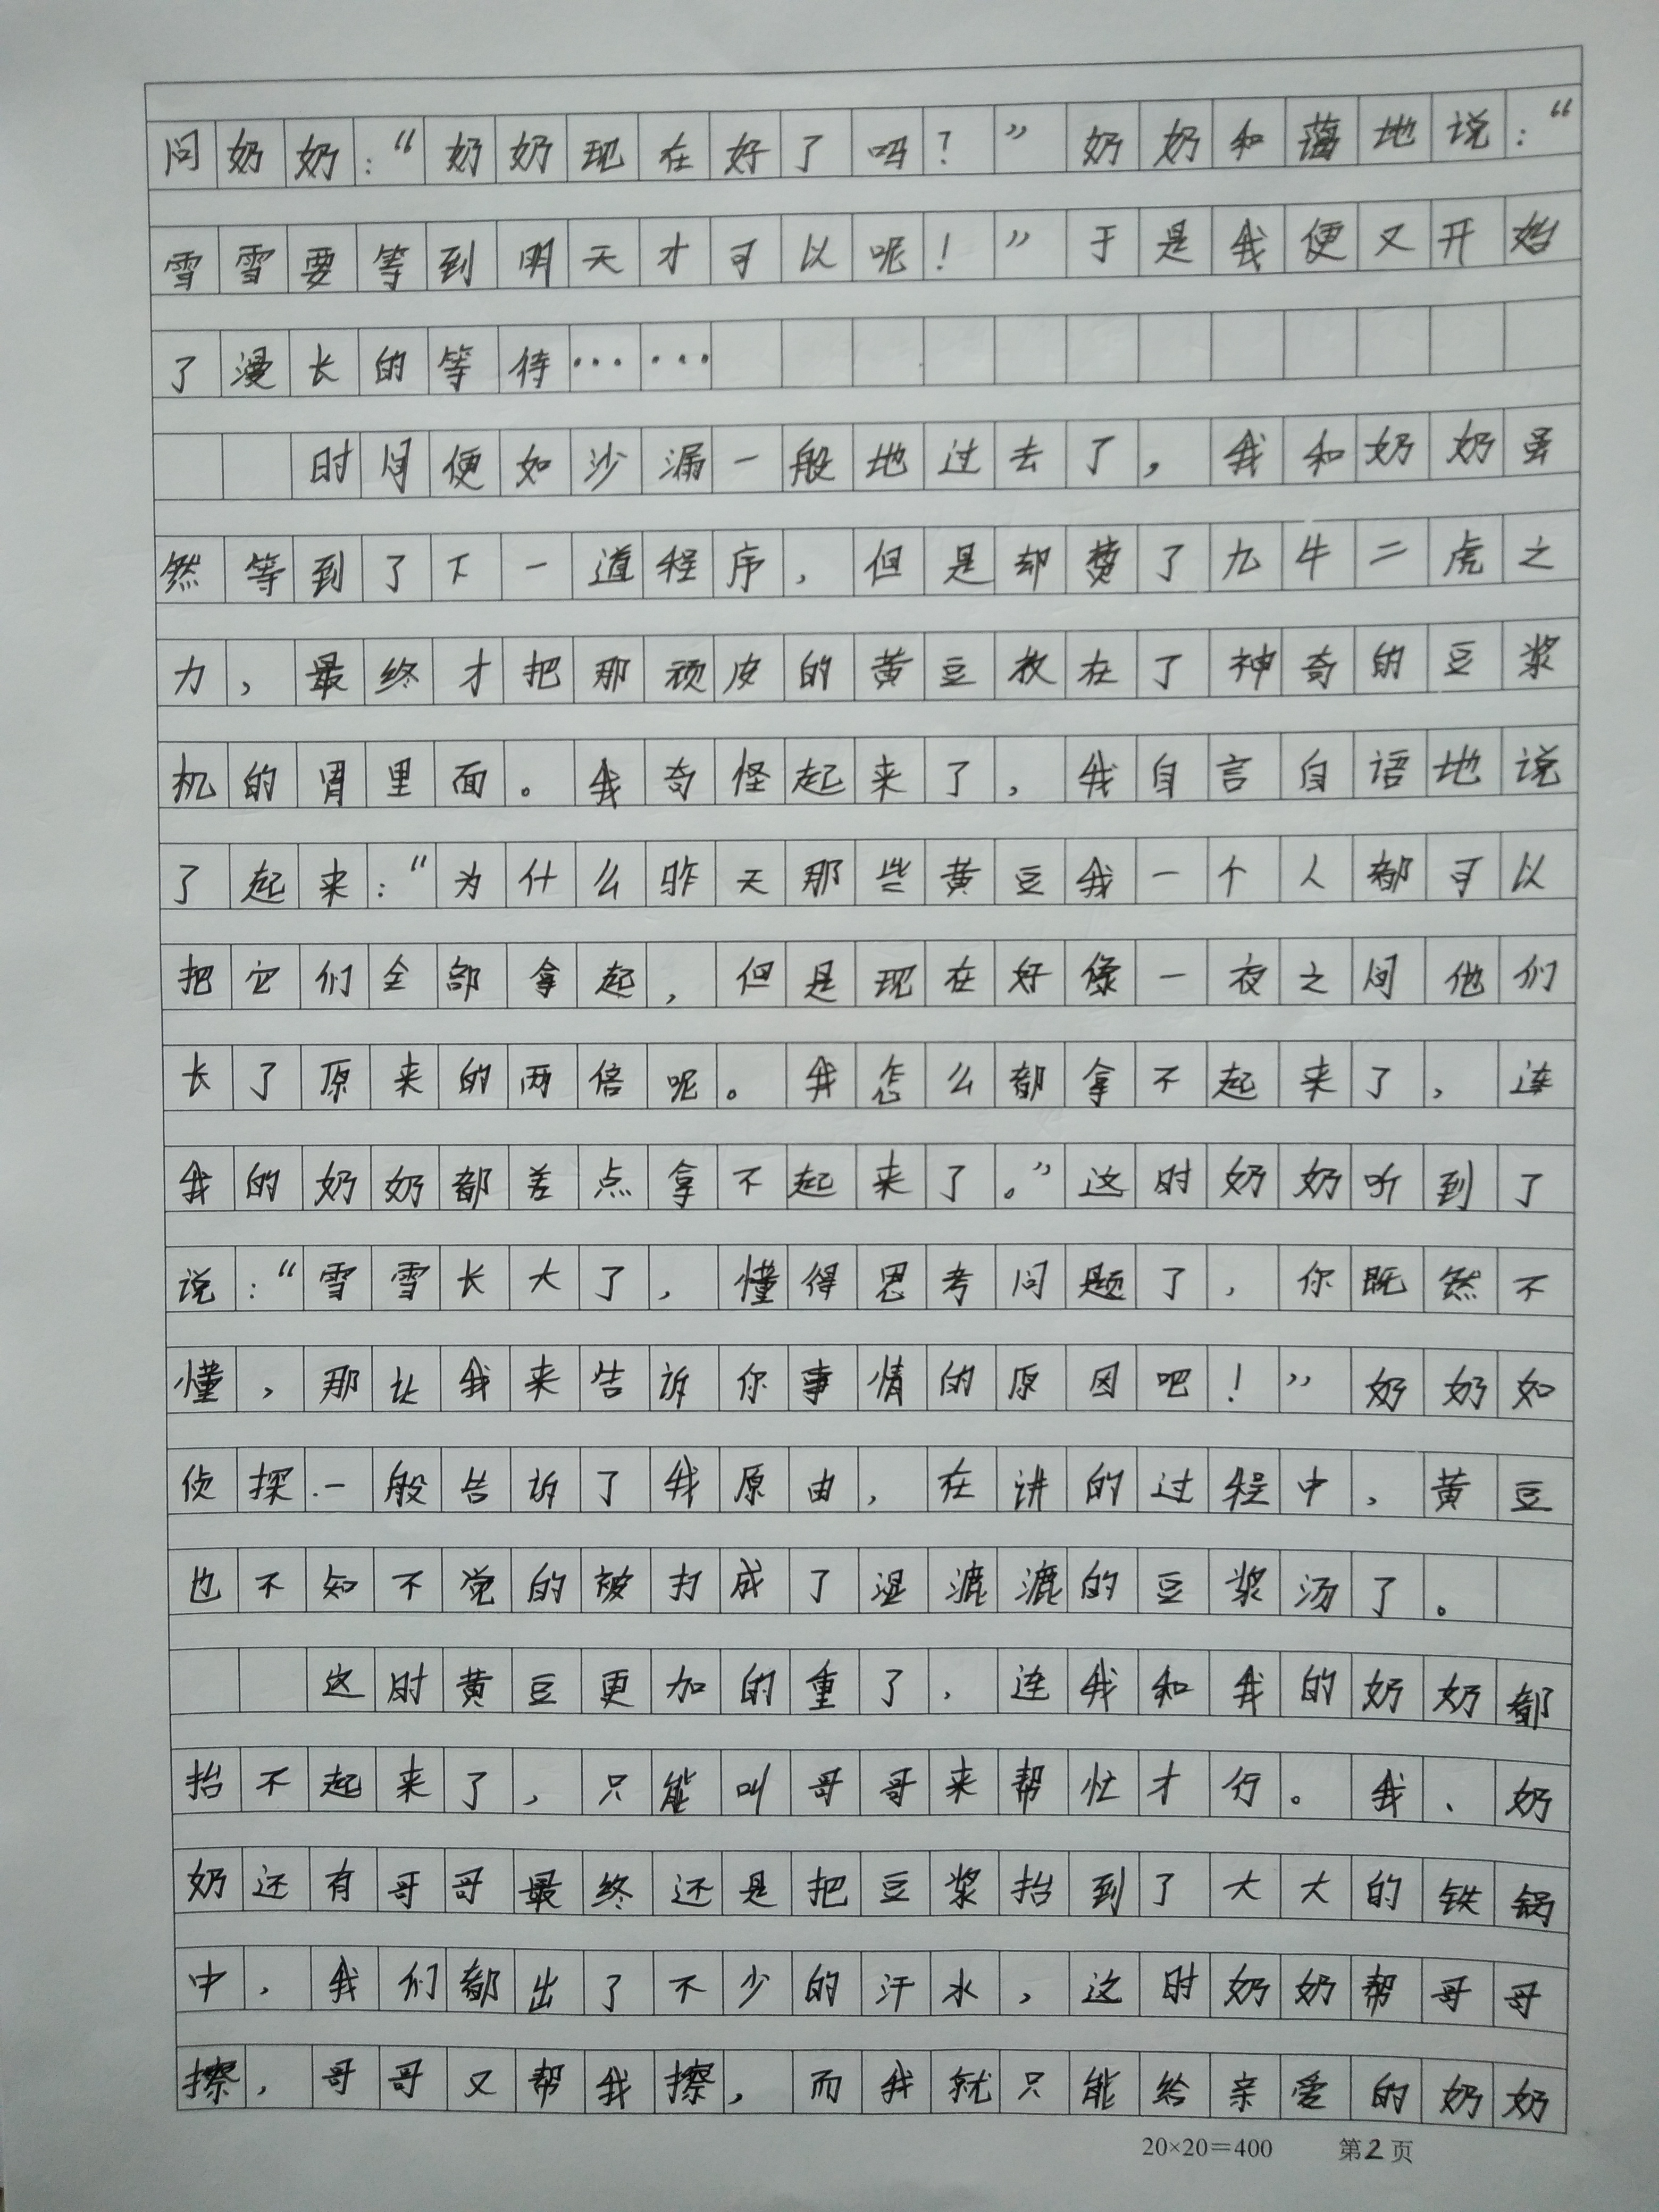 问奶奶：“奶奶现在好了吗？”奶奶和蔼地说：“
雪雪要等到明天才可以呢！”于是我便又开始
了漫长的等待……
时间便如沙漏一般地过去了，我和奶奶虽
然等到了下一道程序，但是却费了九牛二虎之
力，最终才把那顽皮的黄豆放在了神奇的豆浆
机的胃里面。我奇怪起来了，我自言自语地说
了起来：“为什么昨天那些黄豆我一个人都可以
把它们全部拿起，但是现在好像一夜之间他们
长了原来的两倍呢。我怎么都拿不起来了，连
我的奶奶都差点拿不起来了。”这时奶奶听到了
说：“雪雪长大了，懂得思考问题了，你既然不
懂，那让我来告诉你事情的原因吧！”奶奶如
侦探一般告诉了我原由，在讲的过程中，黄豆
也不知不觉的被打成了湿漉漉的豆浆汤了。
这时黄豆更加的重了，连我和我的奶奶都
抬不起来了，只能叫哥哥来帮忙才行。我、奶
奶还有哥哥最终还是把豆浆抬到了大大的铁锅
中，我们都出了不少的汗水，这时奶奶帮哥哥
擦，哥哥又帮我擦，而我就只能给亲爱的奶奶
20×20＝400 第2页